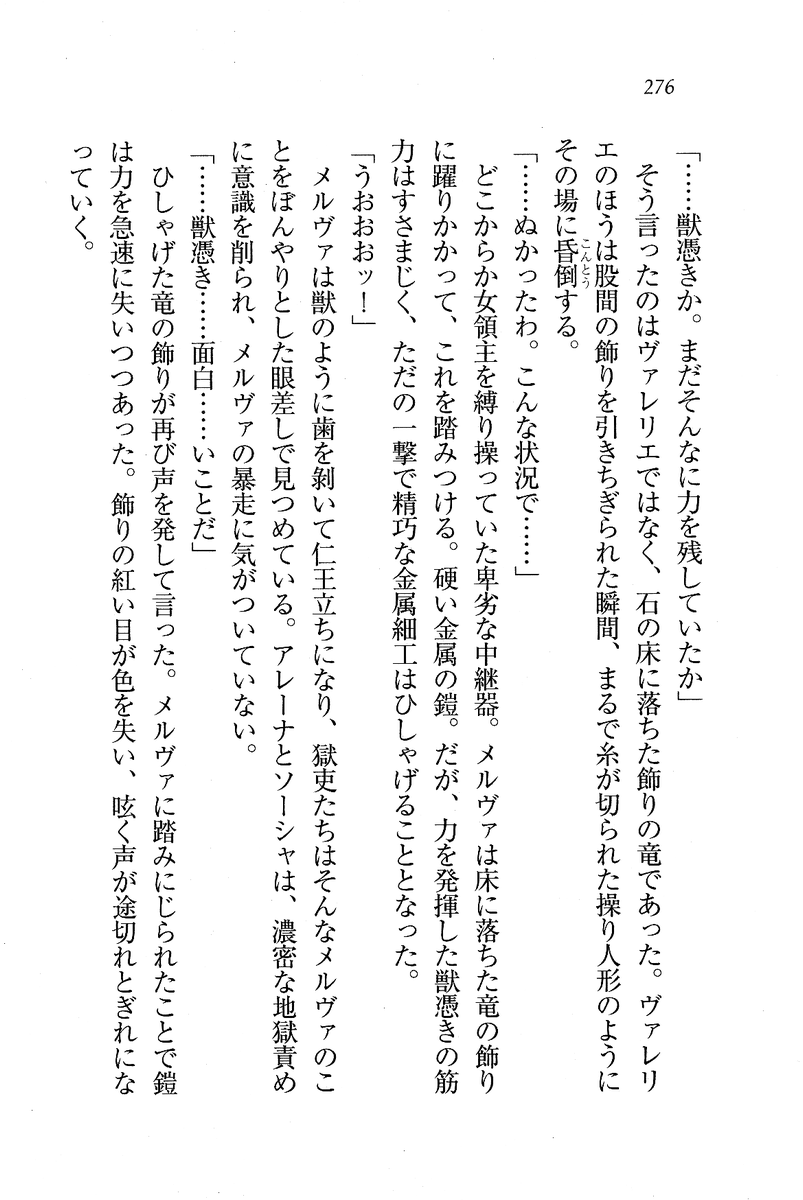 276
「……獣憑きか。まだそんなに力を残していたか」
　そう言ったのはヴァレリエではなく、石の床に落ちた飾りの竜であった。ヴァレリ
エのほうは股間の飾りを引きちぎられた瞬間、まるで糸が切られた操り人形のように
その場に昏倒する。
こんとう
「……ぬかったわ。こんな状況で……」
　どこからか女領主を縛り操っていた卑劣な中継器。メルヴァは床に落ちた竜の飾り
に躍りかかって、これを踏みつける。硬い金属の鎧。だが、力を発揮した獣憑きの筋
力はすさまじく、ただの一撃で精巧な金属細工はひしゃげることとなった。
「うおおおッ！」
　メルヴァは獣のように歯を剝いて仁王立ちになり、獄吏たちはそんなメルヴァのこ
とをぼんやりとした眼差しで見つめている。アレーナとソーシャは、濃密な地獄責め
に意識を削られ、メルヴァの暴走に気がついていない。
「……獣憑き……面白……いことだ」
　ひしゃげた竜の飾りが再び声を発して言った。メルヴァに踏みにじられたことで鎧
は力を急速に失いつつあった。飾りの紅い目が色を失い、呟く声が途切れとぎれにな
っていく。